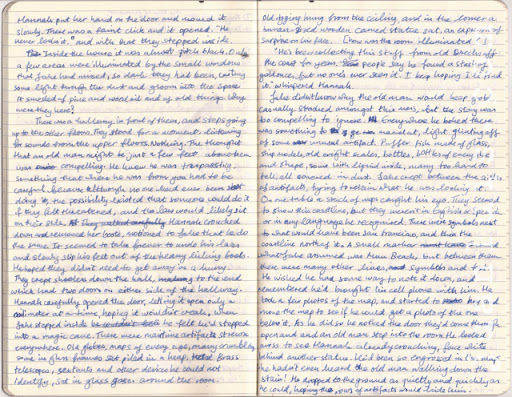 Hannah put her hand on the door and moved it
slowly. There was a faint click and it opened. "He
never locks it." and with that they stepped inside
Inside the house it was almost pitch black. Only
a few areas were illuminated by the small windows
that Jake had missed, so dark they had been, casting
some light through the dust and gloom into the space
It smelled of pine and wood oil and of old things. Why
were they here?
There was a hallway in front of them, and steps going
up to the other floor. They stood for a moment, listening
for sounds from the upper floors. Nothing. The thought
that an old man might be just a few feet above them
was compelling. He knew he was trespassing,
something that where he was from you had to be
careful because although no one had ever been
doing it, the possibility existed that someone could do it
if they felt threatened, and the law would likely sit
on their side. Hannah crouched
down and removed her boots, motioned to Jake that he do
the same. It seemed to take forever to undo his laces
and slowly slip his feet out of the heavy hiking boots.
He hoped they didn't need to get away in a hurry.
They crept down the hall, to the end
which had two doors on either side of the hallway.
Hannah carefully opened the door, letting it open only a
centimeter at a time, hoping it wouldn't creak, when
Jake stepped inside he felt he'd stepped
into a magic cave. There were maritime artifacts strewn
everywhere. Old globes, maps of every age, many crumbly
ones in glass frames sat piled in a heap. Brass
telescopes, sextants and other devices he could not
identify, sat in glass cases around the room.
Old rigging hung from the ceiling and in the corner a
human-sized wooden carved statue sat, an expression of
surprise on its face. the room illuminated
"He's been collecting this stuff from old wrecks off
the coast for years. people say he found a stash of
gold once, but no one's ever seen it. I keep hoping I'll find
it" whispered Hannah.
Jake didn't know why the old man would keep gold
casually stashed amongst this mess, but the story was
too compelling to ignore. Everywhere he looked there
was something to gaze at, light glinting off
of some unusual artifact. Puffer fish made of glass,
ship models, old weight scales, bottles of every size
and shape, some with liquid inside, many too hard to
tell, all covered in dust. Jake crept between the aisles
of artifacts, trying to retain what he was looking at.
On one table a stack of maps caught his eye. They seemed
to show this coastline, but they weren't in english
or in any language he recognized. There were symbols next
to what would have been San Francisco, and then the
coastline north of it. a small marker around
what Jake assumed was Muir Beach, but between them
there were many other lines, and symbols and
He wished he had some way to note it down, and
remembered he'd brought his cell phone with him. He
took a few photos of the map, and started to try and
move the map to see if he could get a photo of the one
below it. As he did so he noticed the door they'd come through
open and an old man step into the room. He looked
across to see Hannah already crouching, face white
behind another statue. He'd been so engrossed in it
he hadn't even heard the old man walking down the
stairs! He dropped to the ground as quietly and quickly as
he could, hoping the rows of artifacts would hide him.